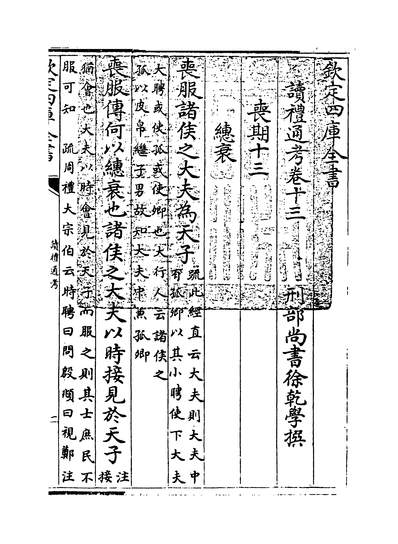 欽定四庫全書
讀禮通考卷十三　刑部尚書徐乾學撰
喪期十三
繐衰
喪服諸侯之大夫為天子
疏此經直云大夫則大夫中
有孤卿以其小聘使下大夫
大聘或使孤或使卿也大行人云諸侯之
孤以皮帛繼子男故知大夫中兼孤卿
喪服傳何以繐衰也諸侯之大夫以時接見於天子
注
接
猶會也大夫以時會見於天子而服之則其士庶民不
服可知　疏周禮大宗伯云時聘曰問殷覜曰視鄭注
欽定四庫全書
讀禮通考